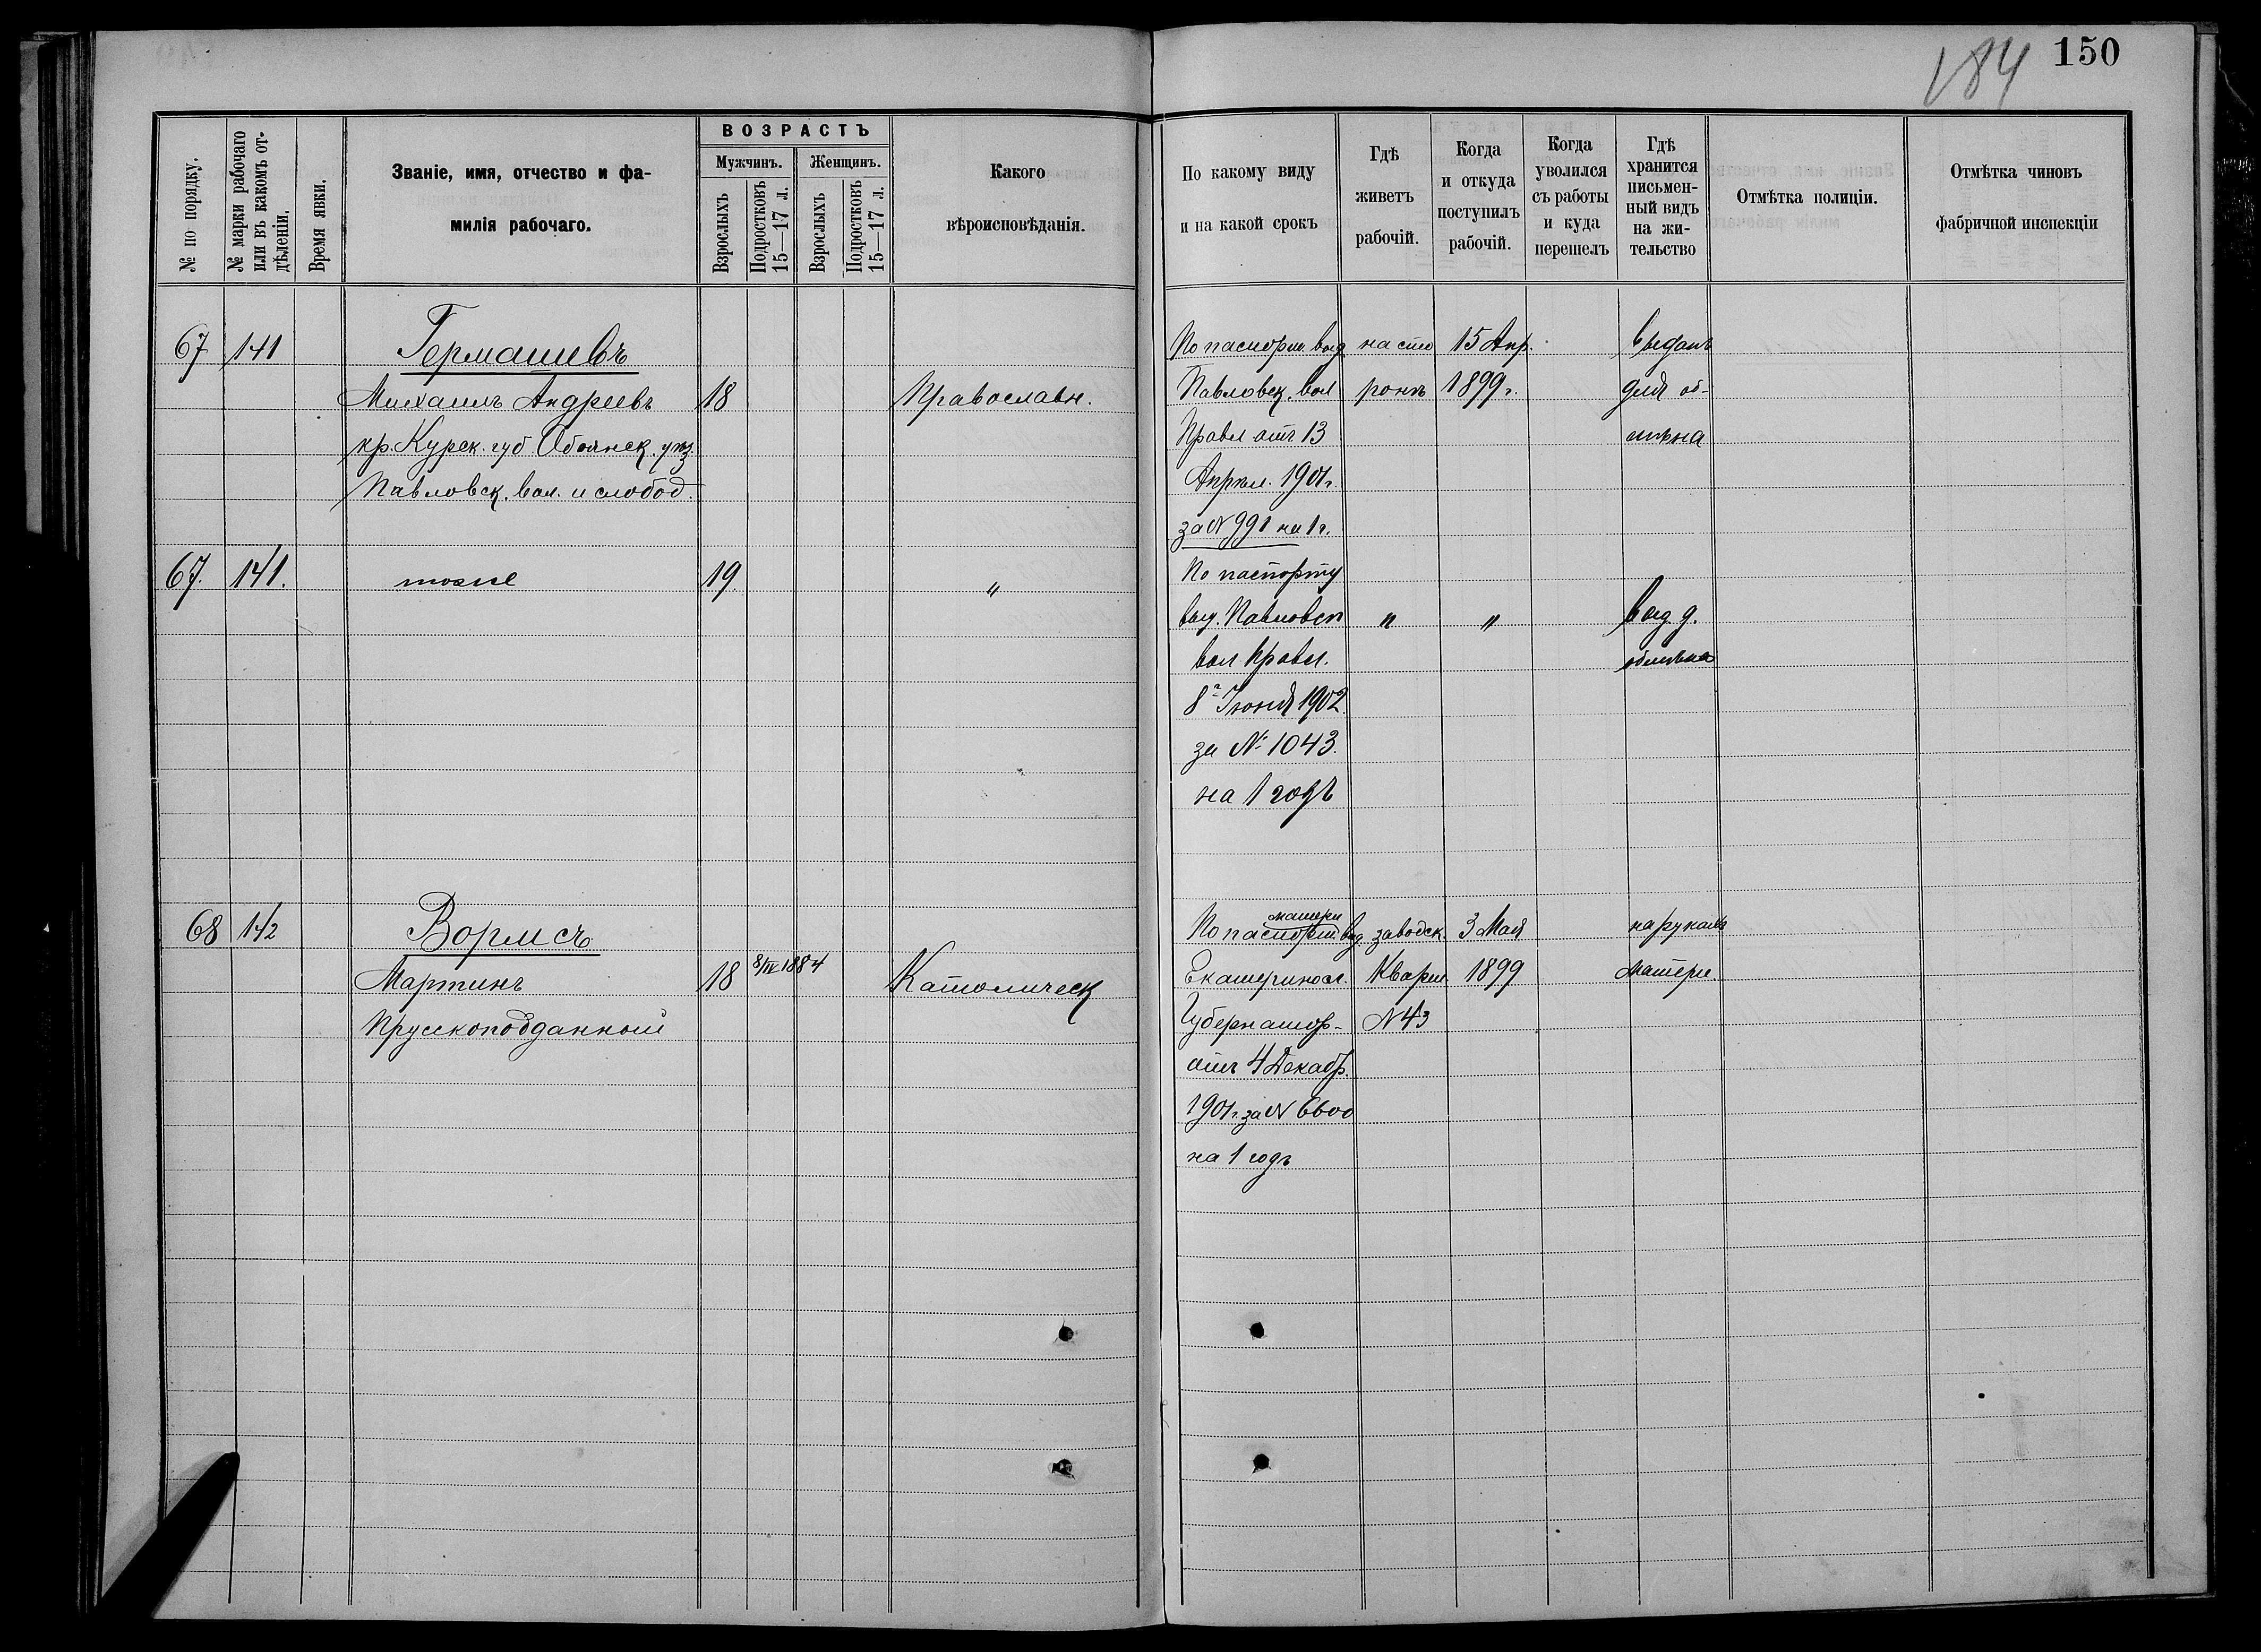 184 150
№ по порядку.
№ марки рабочаго или въ какомъ отдѣленіи.
Время явки.
Званіе, имя, отчество и фа-
милія рабочаго.
ВОЗРАСТЪ
Мужчинъ. Женщинъ.
Взрослыхъ
Подростковъ 15—17 л.
Взрослыхъ
Подростковъ 15—17 л.
Какого
вѣроисповѣданія.
По какому виду
и на какой срокъ
Гдѣ
живетъ
рабочій.
Когда
и откуда
поступилъ
рабочій.
Когда
уволился
съ работы
и куда
перешелъ
Гдѣ
хранится
письмен-
ный видъ
на жи-
тельство
Отмѣтка полиціи.
Отмѣтка чиновъ
фабричной инспекціи
67 141 Гермашевъ По паспорт. выд на сто 15 Апр. выданъ
Михаилъ Андреевъ 18 Православн. Павловск. вол ронѣ 1899 г. для об-
кр. Курск. губ Обоянск. уѣз. Правл отъ 13 мѣна
Павловск. вол. и слобод. Апрѣл. 1901 г.
за № 991 на 1 г.
67. 141. тоже 19. „ По паспорту
выд. Павловск „ „ выд д.
вол Правл. обмѣна
8го Іюня 1902.
за № 1043.
на 1 годъ
матери
68 142 Вормсъ По паспорт. выд заводск. 3 Мая на рукахъ
Мартинъ 18 8/IV 1884 Католическ Екатериносл. Кварт. 1899 матери.
Прусскоподданный Губернатор- № 43
отъ 4 Декабр.
1901 г. за № 6600
на 1 годъ